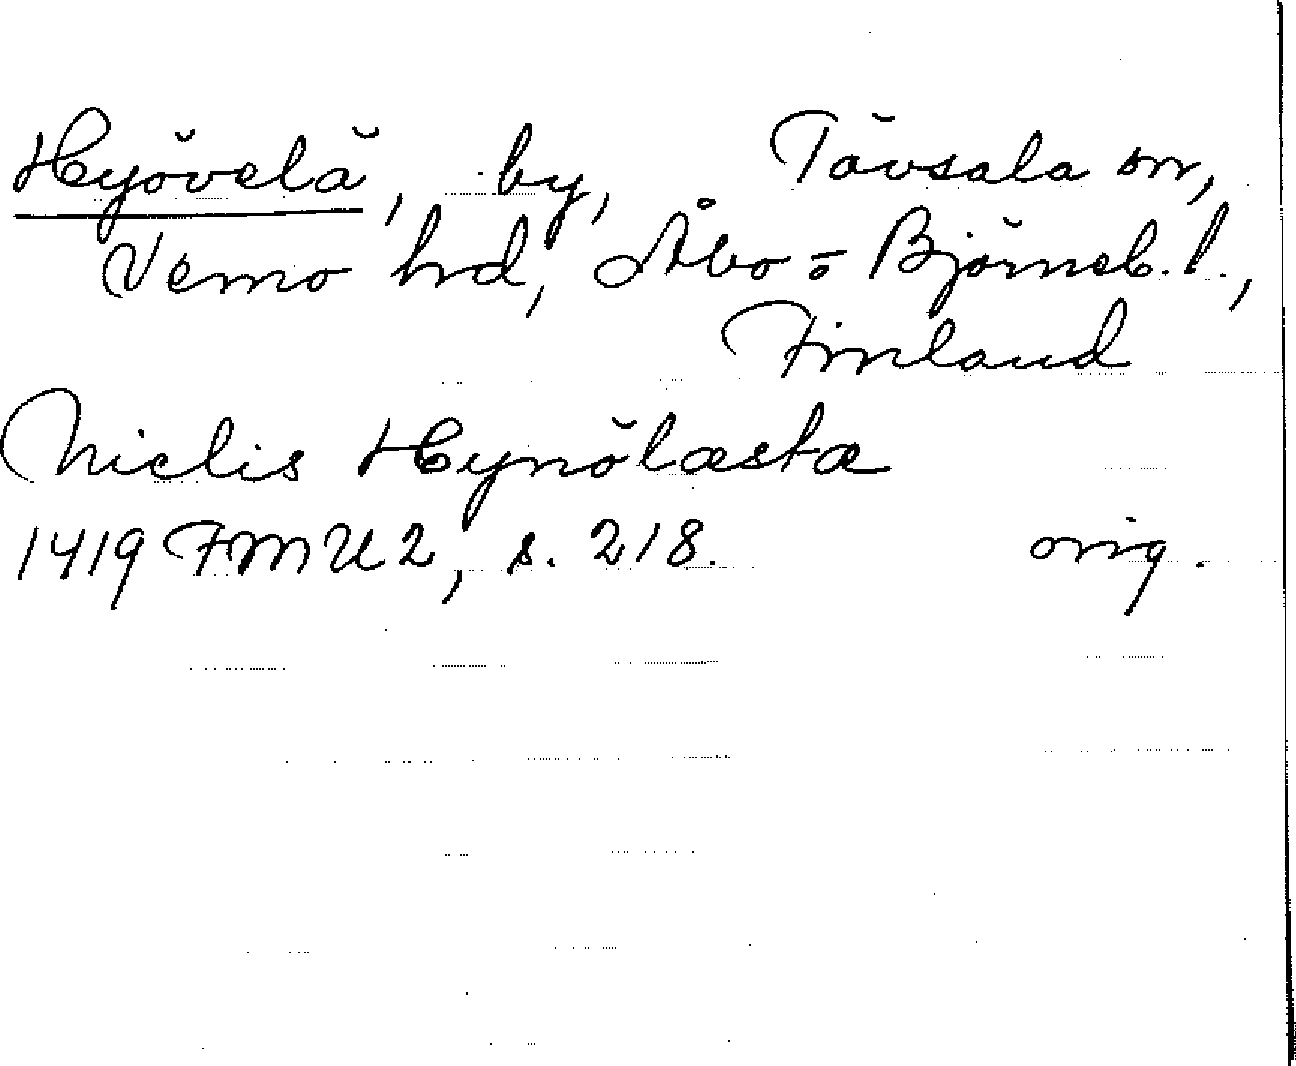 Hyövelä, by, Tövsala sn,
Vemo hd, Åbo o Björneb. l.,
Finland
Niclis Hynölæstæ
1419 FMU 2, s. 218. orig.